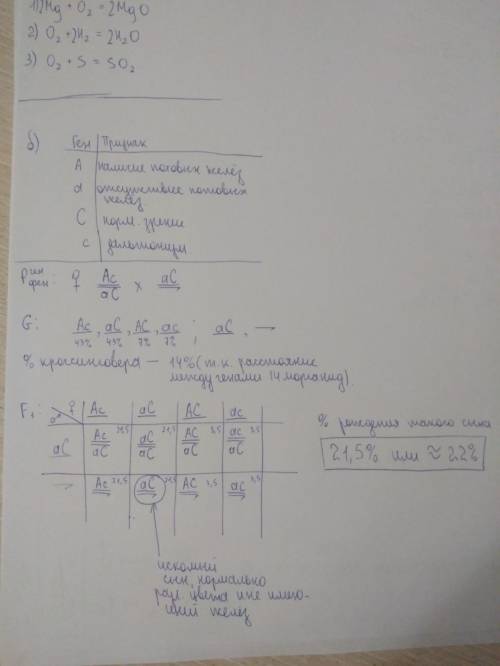 1) 2Mg + O₂ = 2MgO
2) O₂ + 2H₂ = 2H₂O
3) O₂ + S = SO₂
б)
Ген | Признак
A | наличие потовых желёз
a | отсутствие потовых желёз
C | норм. зрение
c | дальтонизм
P ген фен: ♀ Ac/aC × aC/⇁
G: Ac 43%, aC 43%, AC 7%, ac 7% ; aC, ⇁
% кроссинговера — 14% (т.к. расстояние
между генами 14 морганид).
F₁: ♂ ♀ | Ac | aC | AC | ac
aC | Ac/aC 21,5 | aC/aC 21,5 | AC/aC 3,5 | ac/aC 3,5
⇁ | Ac/⇁ 21,5 | aC/⇁ 21,5 | AC/⇁ 3,5 | ac/⇁ 3,5
% рождения такого сына
21,5% или ≈ 22%
искомый
сын, нормально
разл. цвета и не имею-
щий желёз